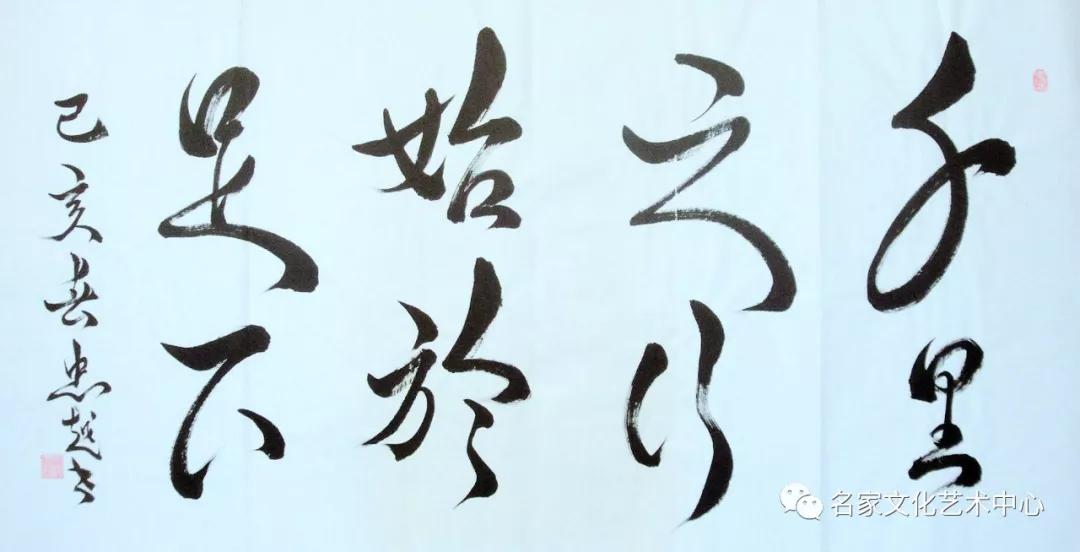 千里
之行
始於
足下
己亥春忠越书
名家文化艺术中心